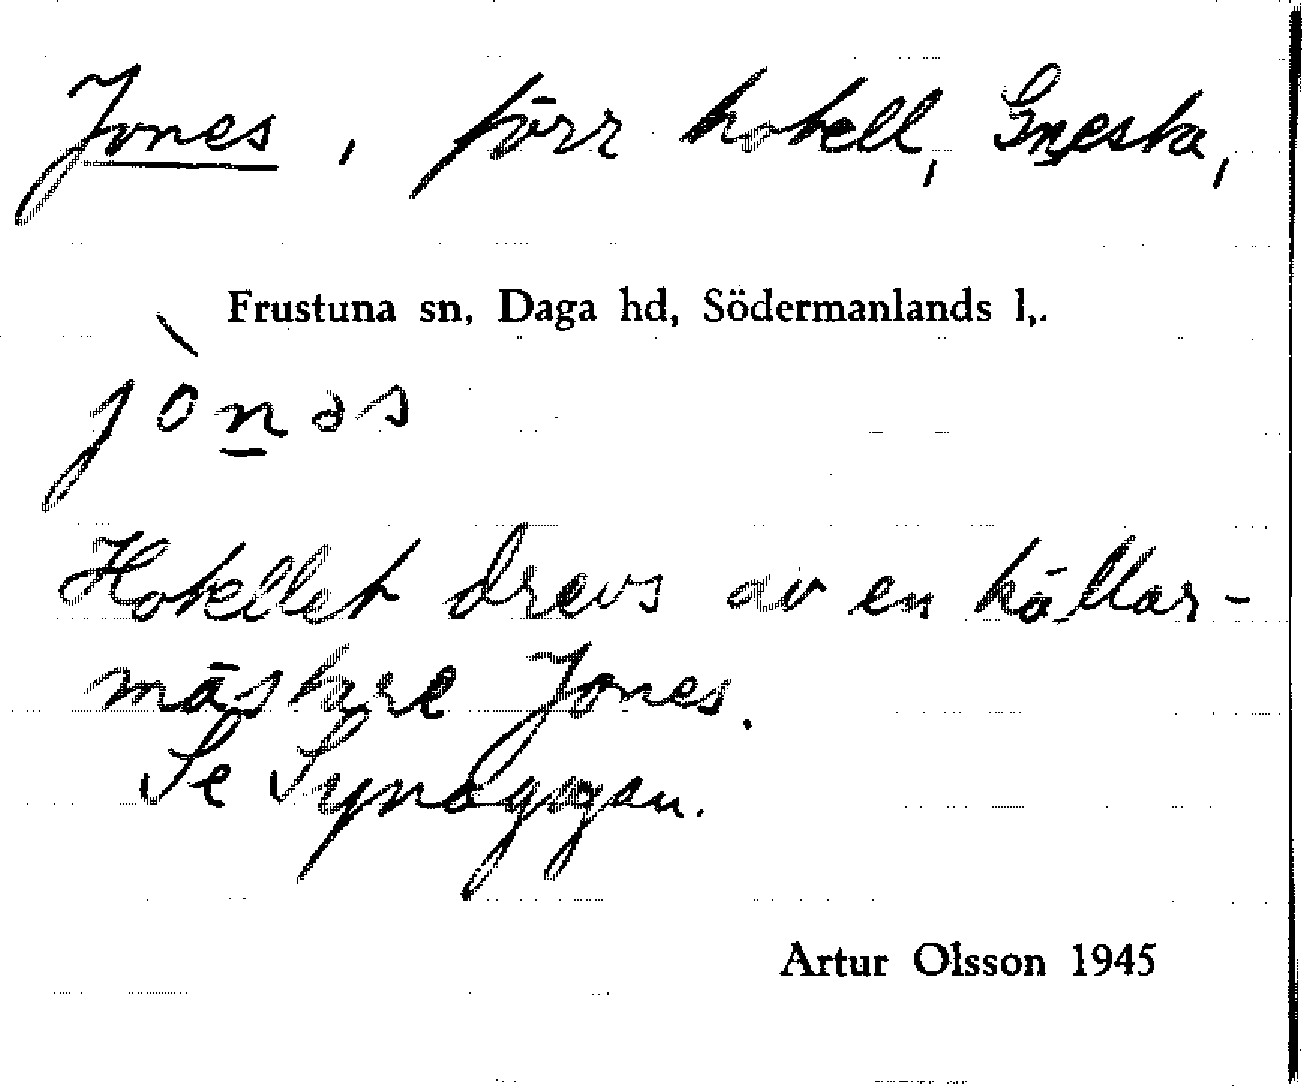 Jones, förr hotell, Gnesta,
Frustuna sn, Daga hd, Södermanlands l,.
jò̀nəs
Hotellet drevs av en källar-
mästare Jones.
Se Synagogan.
Artur Olsson 1945